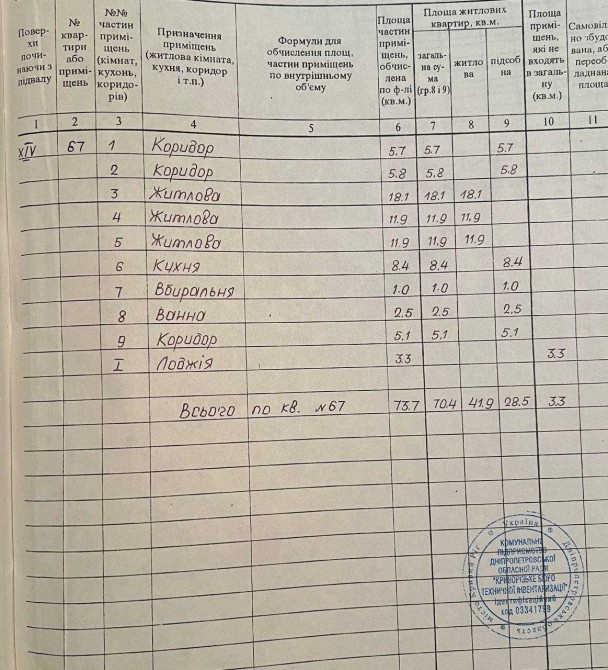 Повер-
хи
почи-
наючи з
підвалу
№
квар-
тири
або
примі-
щень
№№
частин
примі-
щень
(кімнат,
кухонь,
коридо-
рів)
Призначення
приміщень
(житлова кімната,
кухня, коридор
і т.п.)
Формули для
обчислення площ,
частин приміщень
по внутрішньому
об'єму
Площа
частин
примі-
щень,
обчис-
лена
по ф-лі
(кв.м.)
Площа житлових
квартир, кв.м.
загаль-
на су-
ма
(гр.8 і 9)
житло
ва
підсоб
на
Площа
примі-
щень,
які не
входять
в загаль-
ну
(кв.м.)
Самовіль
но збудо
вана, аб
переоб
ладнана
площа
1 2 3 4 5 6 7 8 9 10 11
XIV 67 1 Коридор 5.7 5.7 5.7
2 Коридор 5.8 5.8 5.8
3 Житлова 18.1 18.1 18.1
4 Житлова 11.9 11.9 11.9
5 Житлова 11.9 11.9 11.9
6 Кухня 8.4 8.4 8.4
7 Вбиральня 1.0 1.0 1.0
8 Ванна 2.5 2.5 2.5
9 Коридор 5.1 5.1 5.1
I Лоджія 3.3 3.3
Всього по кв. №67 73.7 70.4 41.9 28.5 3.3
Україна * Дніпропетровська область * місто Кривий Ріг
КОМУНАЛЬНЕ
ПІДПРИЄМСТВО
ДНІПРОПЕТРОВСЬКОЇ
ОБЛАСНОЇ РАДИ
"КРИВОРІЗЬКЕ БЮРО
ТЕХНІЧНОЇ ІНВЕНТАРИЗАЦІЇ"
Ідентифікаційний
код 03341799